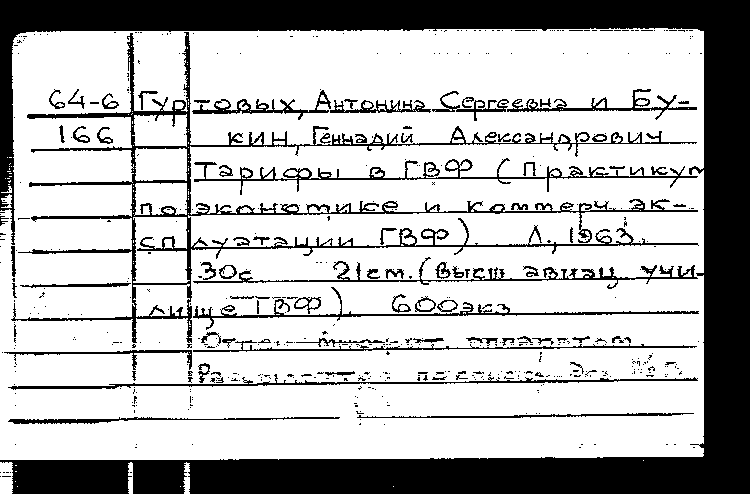 64-6 Гуртовых, Антонина Сергеевна и Бу-
166 кин, Геннадий Александрович
Тарифы в ГВФ (Практикум
по экономике и коммерч. эк-
сплуатации ГВФ). Л., 1963.
30с 21см. (Высш авиац учи-
лище ГВФ). 600экз
Отпеч. множит. аппаратом.
Рассылается по списку. Экз. №